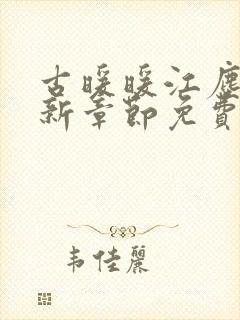 古暖暖江尘
新章节免费
韦佳丽